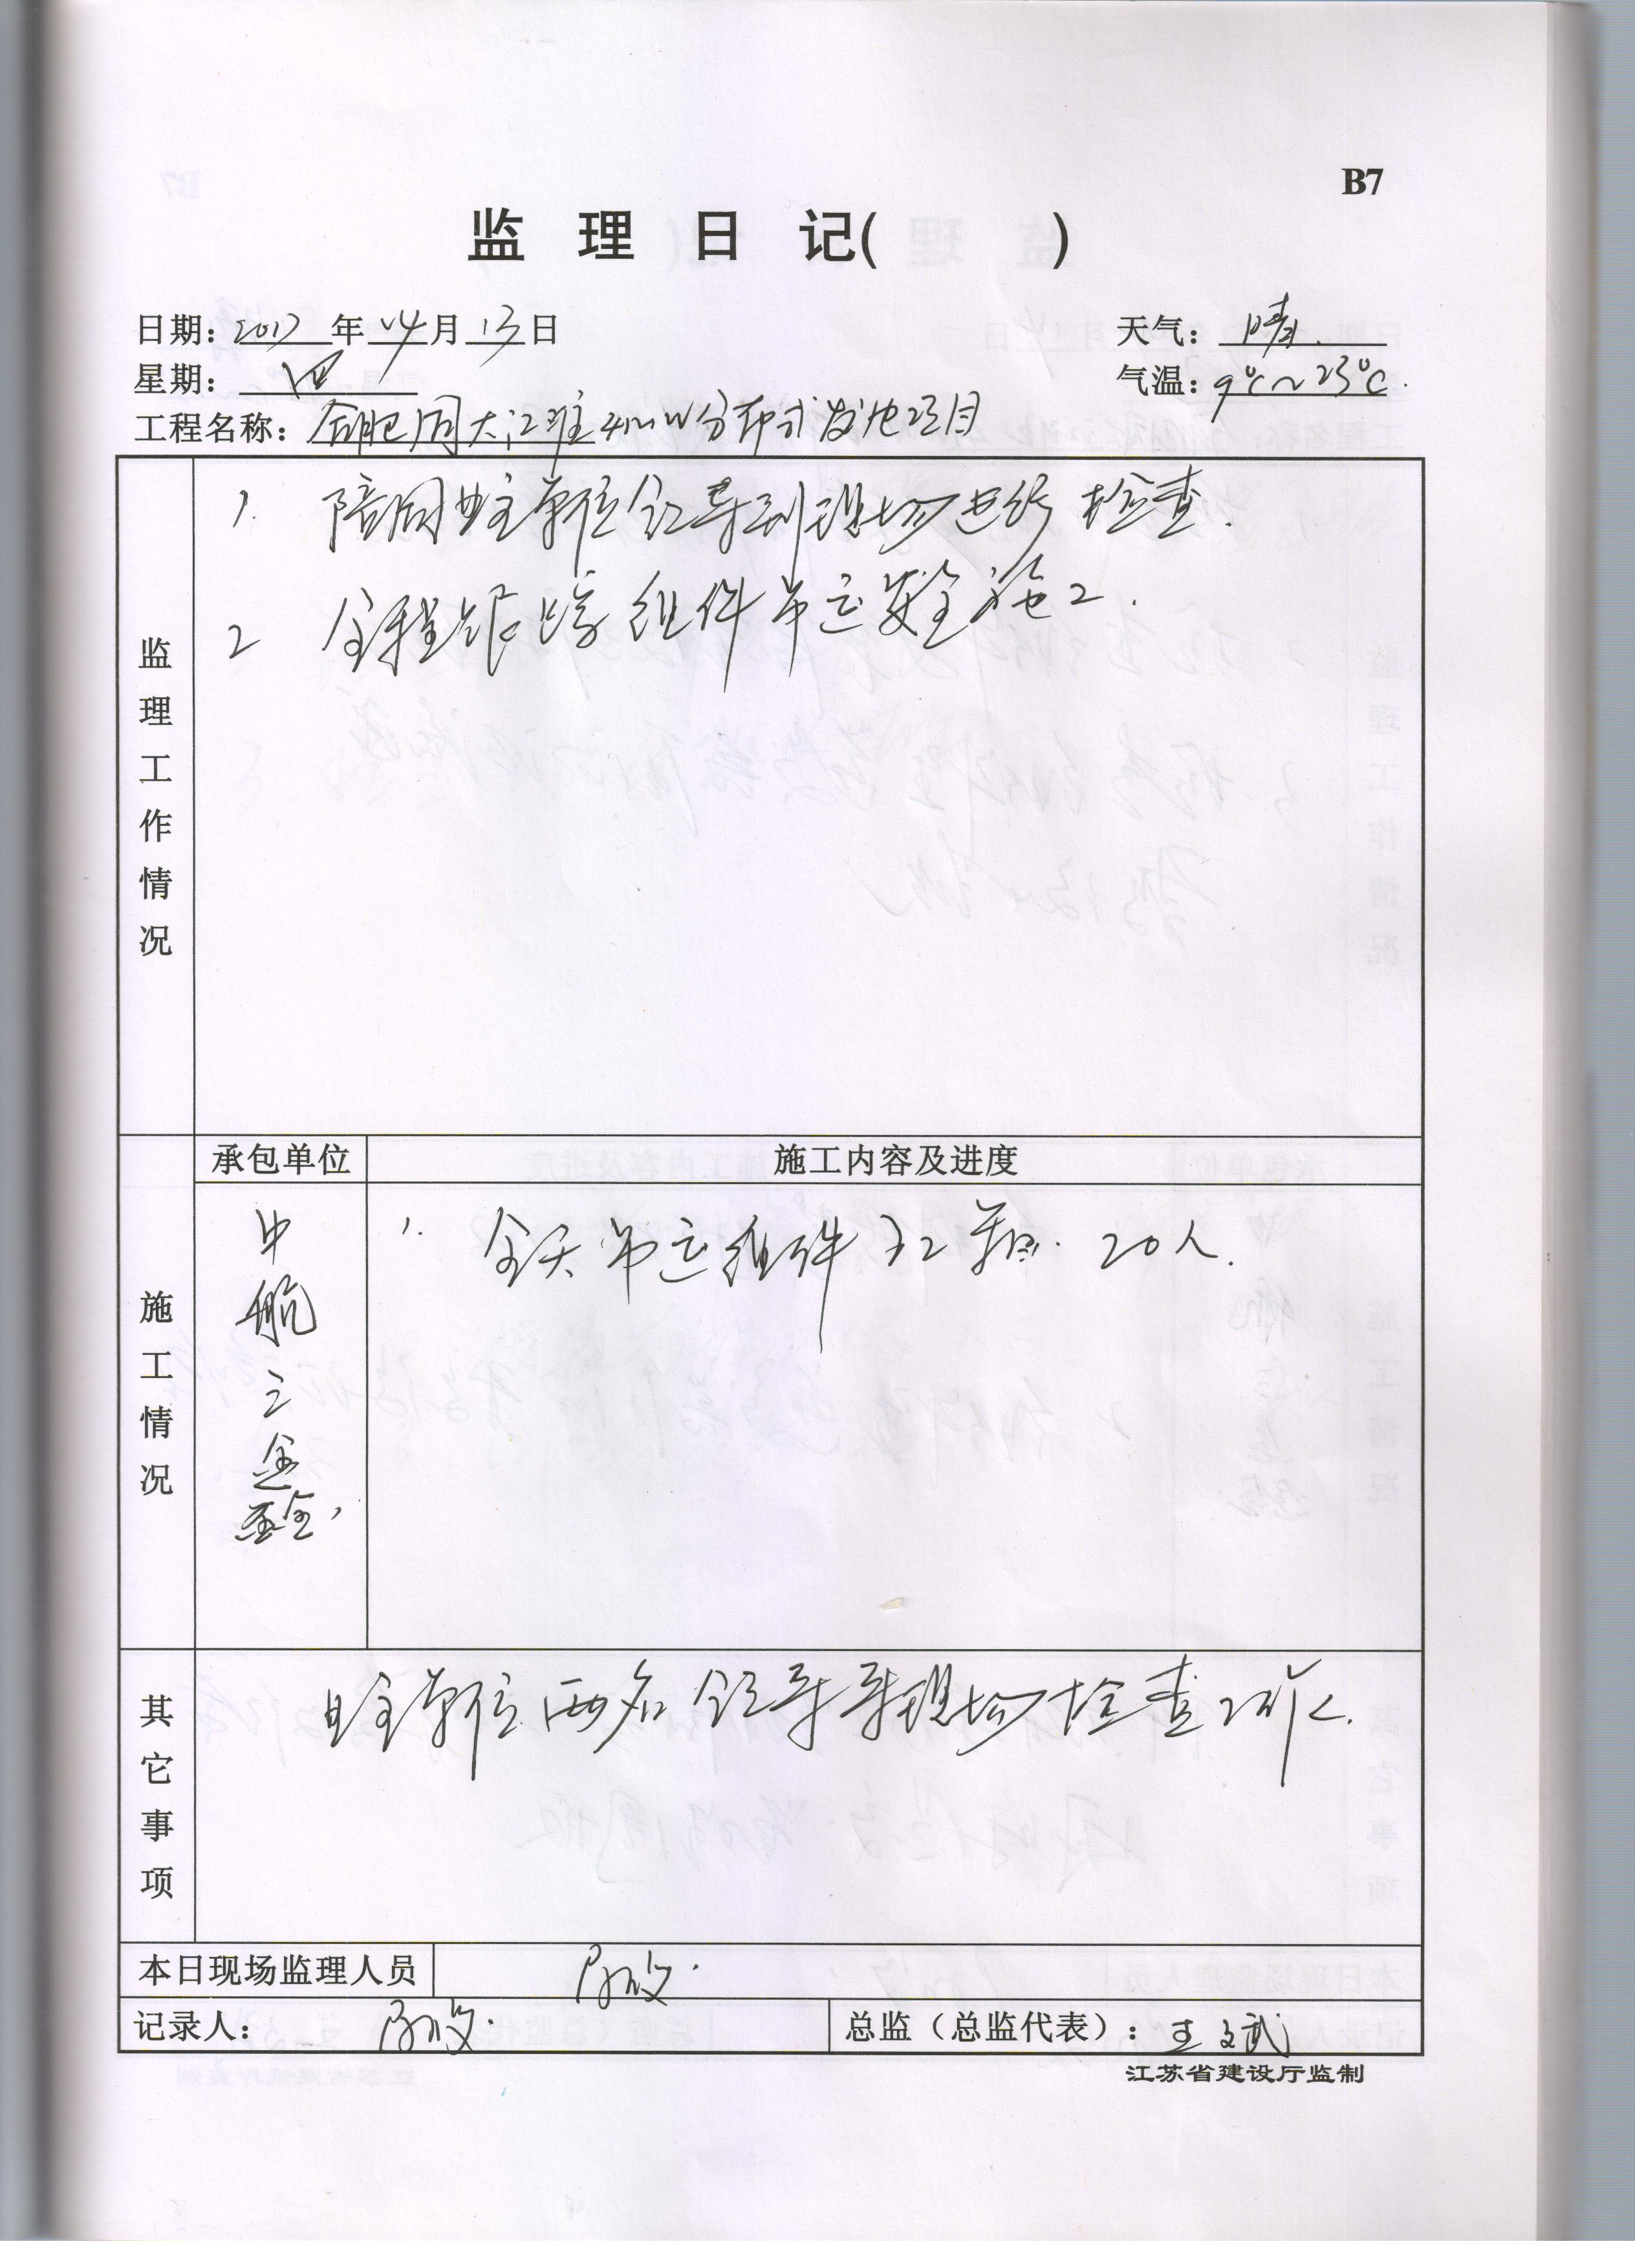 B7
监 理 日 记( )
日期: 2017 年 4 月 13 日
天气: 晴.
星期: 四
气温: 9℃~23℃.
工程名称: 合肥周大江班4MW分布式发电项目
监理工作情况
1. 陪同业主单位领导到现场进行检查.
2 全程跟踪组件吊运安全施工.
承包单位
施工内容及进度
施工情况
中航三鑫
1. 全天吊运组件 20人.
其它事项
业主单位两名领导 现场检查工作.
本日现场监理人员
记录人:
总监（总监代表）: 王文武
江苏省建设厅监制